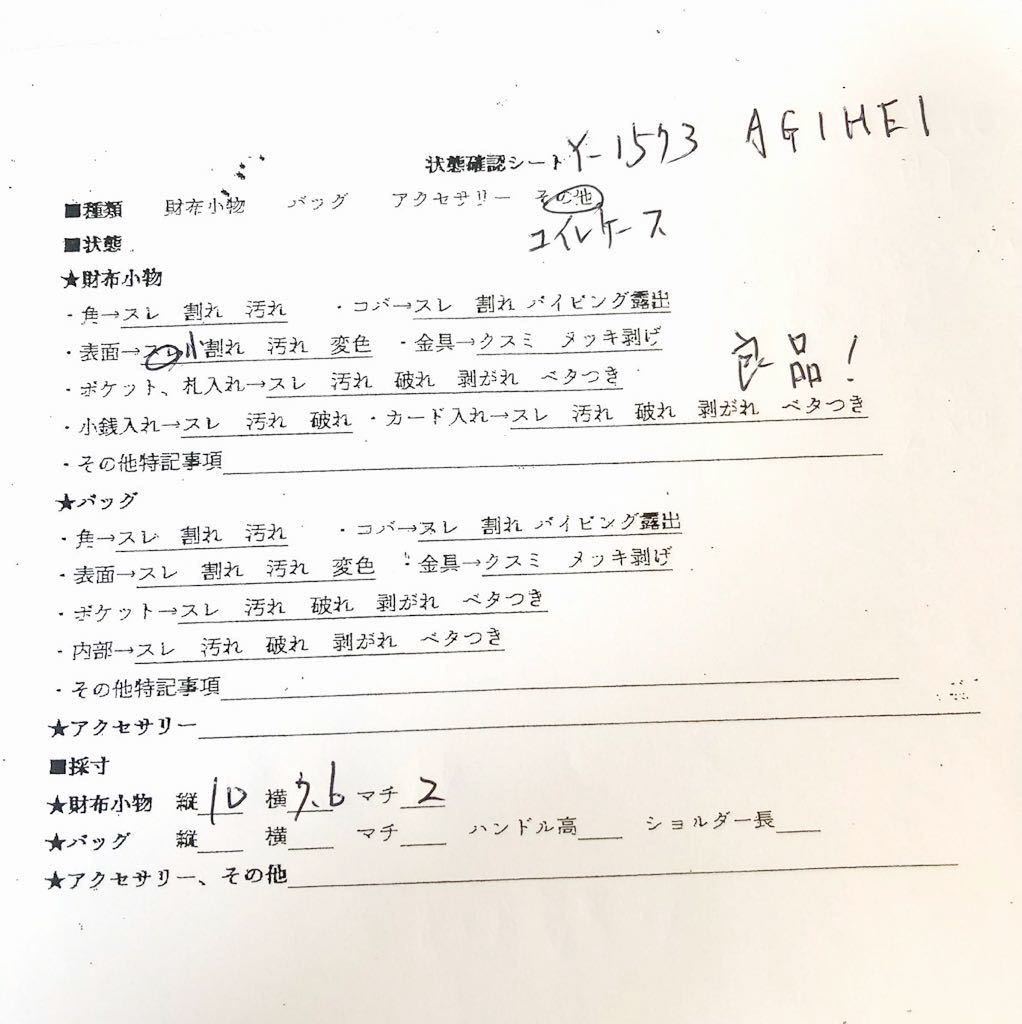 Y-1573 AGIHEI
状態確認シート
■種類 財布小物 バッグ アクセサリー その他
コイレケース
■状態
★財布小物
・角→スレ 割れ 汚れ ・コバ→スレ 割れ パイピング露出
・表面→スレ小 割れ 汚れ 変色 ・金具→クスミ メッキ剥げ
良品!
・ポケット、札入れ→スレ 汚れ 破れ 剥がれ ベタつき
・小銭入れ→スレ 汚れ 破れ ・カード入れ→スレ 汚れ 破れ 剥がれ ベタつき
・その他特記事項
★バッグ
・角→スレ 割れ 汚れ ・コバ→スレ 割れ パイピング露出
・表面→スレ 割れ 汚れ 変色 ・金具→クスミ メッキ剥げ
・ポケット→スレ 汚れ 破れ 剥がれ ベタつき
・内部→スレ 汚れ 破れ 剥がれ ベタつき
・その他特記事項
★アクセサリー
■採寸
★財布小物 縦10 横7.6 マチ2
★バッグ 縦 横 マチ ハンドル高 ショルダー長
★アクセサリー、その他